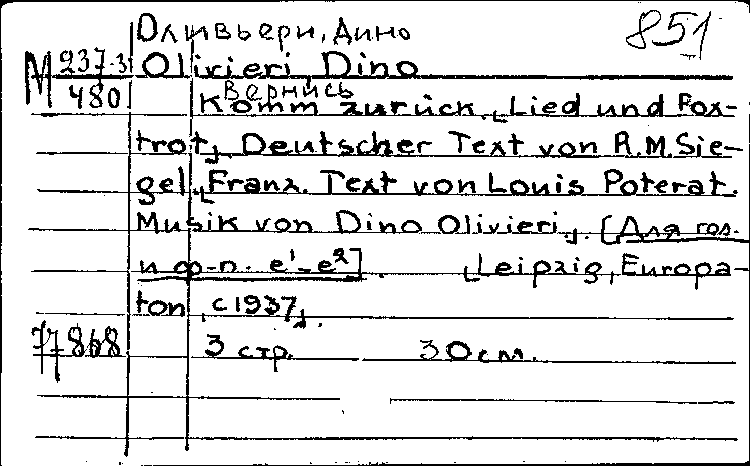 Оливьери, Дино
851
М 237-3
480
Olivieri, Dino
Вернись
Komm zurück. Lied und Fox-
trot. Deutscher Text von R.M. Sie-
gel. Franz. Text von Louis Poterat.
Musik von Dino Olivieri. [Для гол.
и ф-п. e¹-e²]. Leipzig, Europa-
ton, c1937.
77868
3 стр. 30 см.